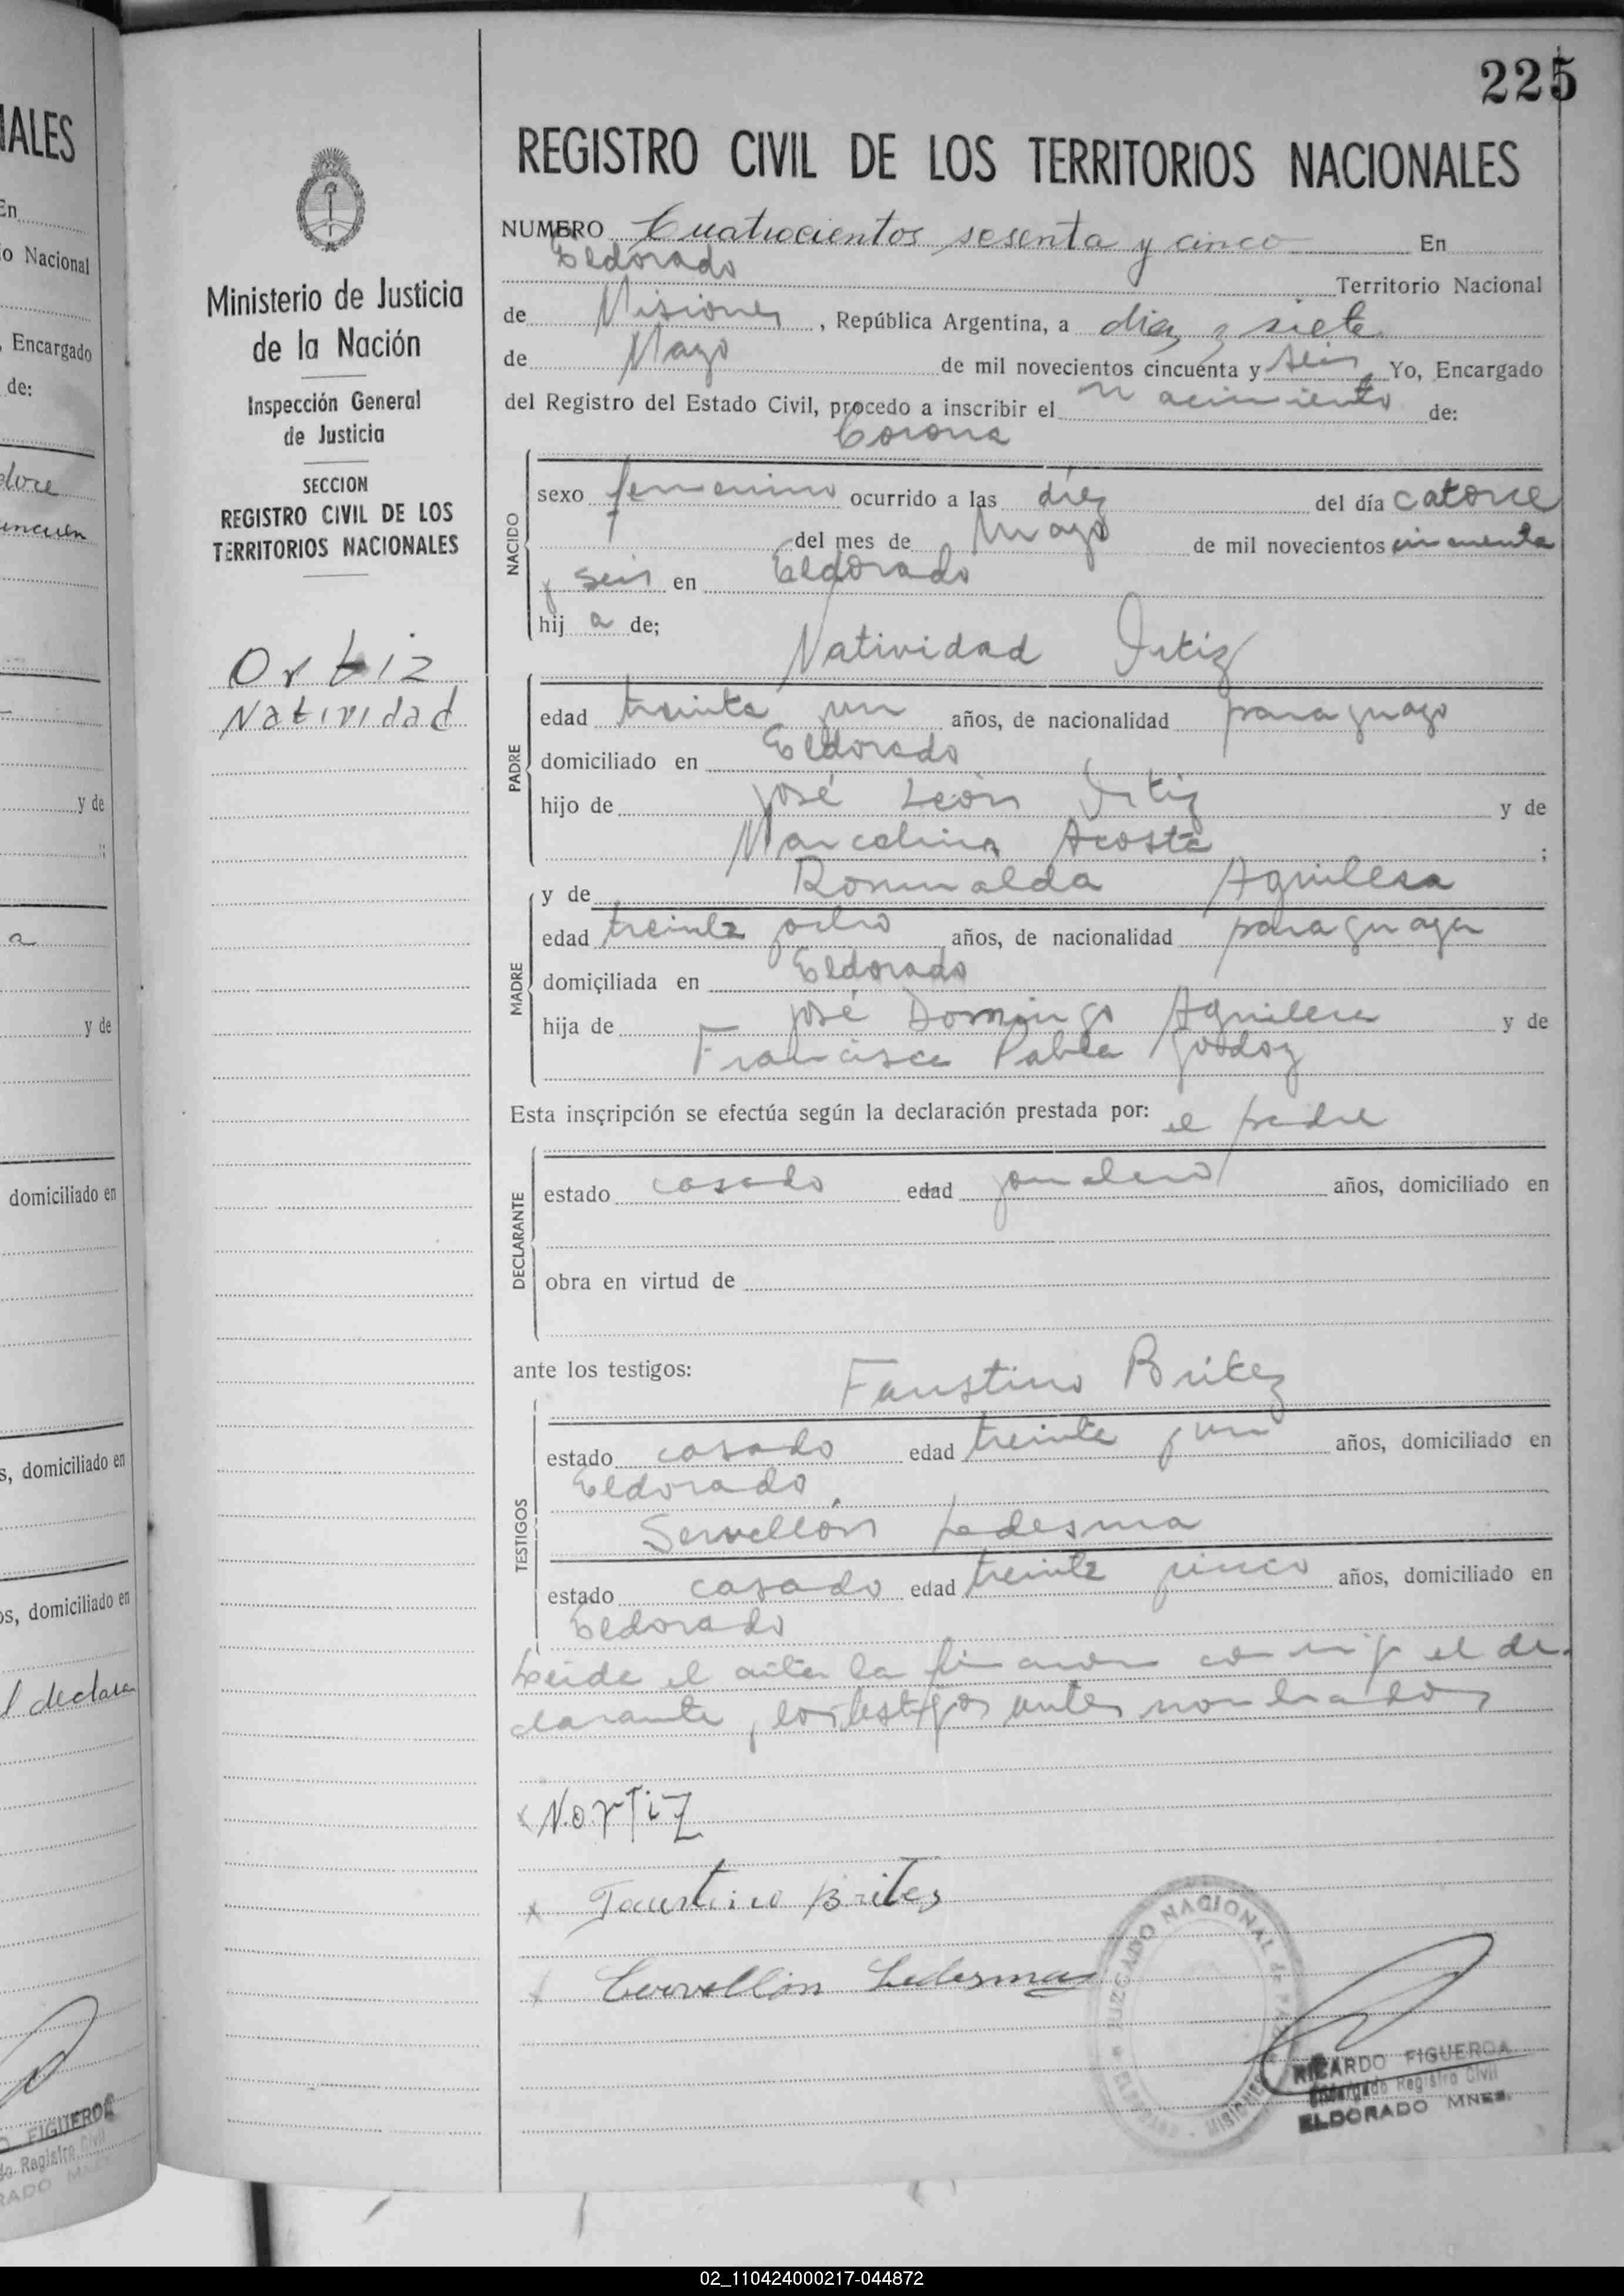 225
REGISTRO CIVIL DE LOS TERRITORIOS NACIONALES
NUMERO Cuatrocientos sesenta y cinco En
Eldorado
Territorio Nacional
de Misiones, República Argentina, a diez y siete
de Mayo de mil novecientos cincuenta y seis, Yo, Encargado
del Registro del Estado Civil, procedo a inscribir el nacimiento de:
Corona
NACIDO
sexo femenino ocurrido a las diez del día catorce
del mes de Mayo de mil novecientos cincuenta
y seis en Eldorado
hij a de;
Natividad Ortiz
PADRE
edad treinta y un años, de nacionalidad paraguayo
domiciliado en Eldorado
hijo de José León Ortiz y de
Marcelina Acosta ;
y de Romualda Aguilera
MADRE
edad treinta y ocho años, de nacionalidad paraguaya
domiciliada en Eldorado
hija de José Domingo Aguilera y de
Francisca Pabla Godoy
Esta inscripción se efectúa según la declaración prestada por: el padre
DECLARANTE
estado casado edad jornalero años, domiciliado en
obra en virtud de
ante los testigos:
Faustino Britez
TESTIGOS
estado casado edad treinta y un años, domiciliado en
Eldorado
Servellón Ledesma
estado casado edad treinta y cinco años, domiciliado en
Eldorado
Leida el acta la firmaron conmigo el de-
clarante y los testigos antes nombrados
x N. Ortiz
x Faustino Brites
x Cervellón Ledesma
JUZGADO NACIONAL de PAZ
ELDORADO - MISIONES
RICARDO FIGUEROA
Encargado Registro Civil
ELDORADO MNES.
Ministerio de Justicia
de la Nación
Inspección General
de Justicia
SECCION
REGISTRO CIVIL DE LOS
TERRITORIOS NACIONALES
Ortiz
Natividad
02_110424000217-044872